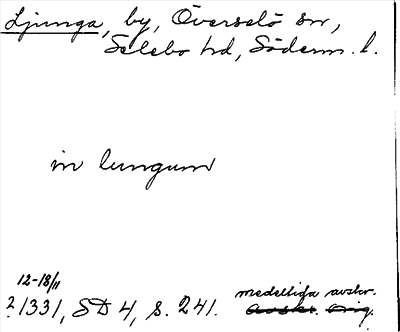 Ljunga, by, Överselö sn,
Selebo hd, Söderm. l.
in lungum
12-18/11
? 1331, SD 4, s. 241. medeltida avskr.
Avskr. Orig.